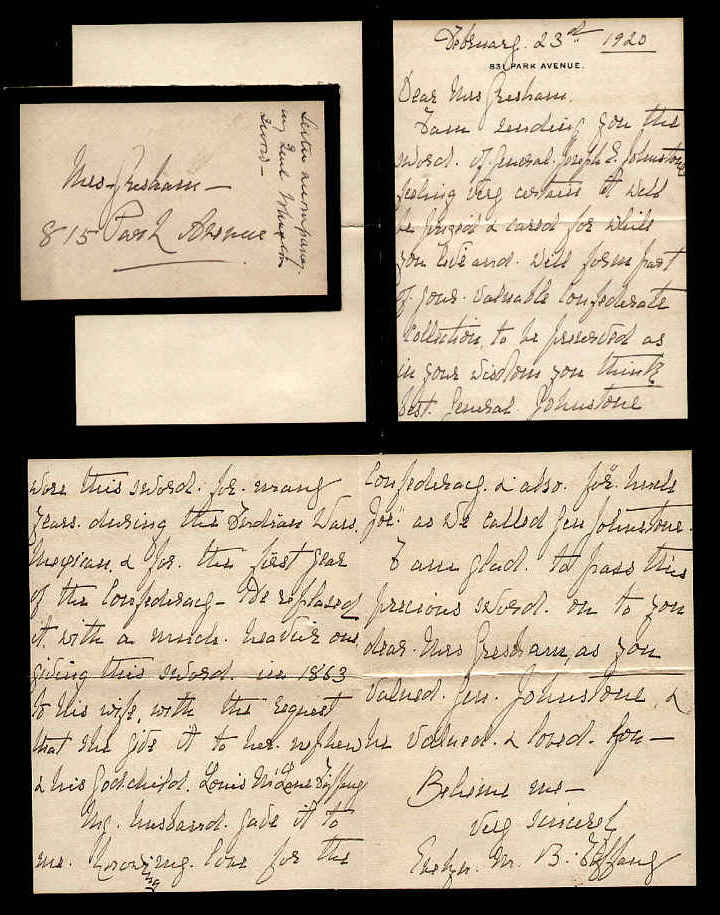 February. 23rd 1920
831 PARK AVENUE.
Dear Mrs Gresham,
I am sending you the
sword. of General Joseph E. Johnstone,
feeling very certain it will
be prized & cared for while
you live and. will form part
of your. valuable Confederate
Collection, to be preserved as
in your wisdom you think
best. General Johnstone
Letter accompany.
ing Genl Johnston
Sword —
Mrs — Gresham —
815 Park Avenue
wore this sword. for. many
years. during the Indian Wars.
Mexican, & for. the first year
of the Confederacy — He replaced
it, with a much. heavier one
giving this sword. in 1863
to his wife, with the request
that she give it to her. nephew
& his Godchild. Louis McLane Tiffany
My. husband. gave it to
me. Knowing my. love for the
Confederacy. & also. for "Uncle
Joe" as we called Gen Johnstone.
I am glad. to pass this
precious sword. on to you
dear. Mrs Gresham, as you
valued. Gen. Johnstone, &
he valued. & loved. you —
Believe me —
Very sincerely
M. B. Tiffany